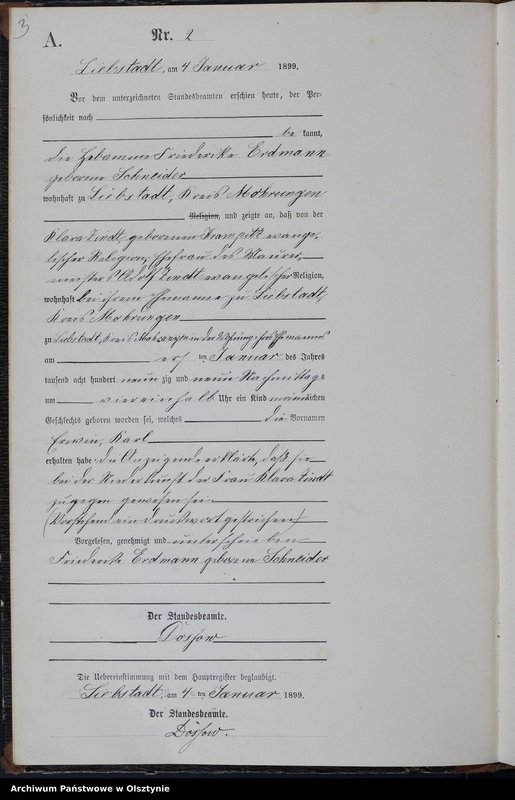 3
A.
Nr. 2
Liebstadt, am 4 Januar 1899.
Vor dem unterzeichneten Standesbeamten erschien heute, der Per-
sönlichkeit nach
be kannt,
die Hebamme Friederike Erdmann
geborene Schneider
wohnhaft zu Liebstadt, Kreis Mohrungen
Religion, und zeigte an, daß von der
Klara Lindt, geborenen Krampitz evange-
lischer Religion, Ehefrau des Maurer-
meisters Adolf Lindt evangelischer Religion,
wohnhaft bei ihrem Ehemanne zu Liebstadt,
Kreis Mohrungen
zu Liebstadt, Kreis Mohrungen in der Wohnung ihres Ehemannes
am ersten Januar des Jahres
tausend acht hundert neunzig und neun Nachmittags
um viereinhalb Uhr ein Kind männlichen
Geschlechts geboren worden sei, welches die Vornamen
Erwin, Karl
erhalten habe: die Anzeigende erklärte, daß sie
bei der Niederkunft der Frau Klara Lindt
zugegen gewesen sei.
(Vorstehend ein Druckwort gestrichen)
Vorgelesen, genehmigt und unterschrieben
Friederike Erdmann geborene Schneider
Der Standesbeamte.
Dossow
Die Uebereinstimmung mit dem Hauptregister beglaubigt.
Liebstadt, am 4 ten Januar 1899.
Der Standesbeamte.
Dossow.
Archiwum Państwowe w Olsztynie